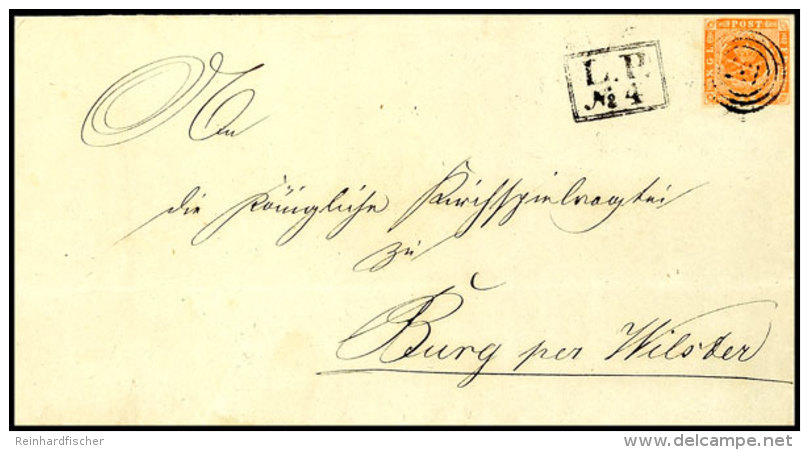 L.P.
No 4
KGL
POST
F
An
die Königliche Kirchspielvogtei
zu
Burg per Wilster
Reinhardfischer
www.delcampe.net